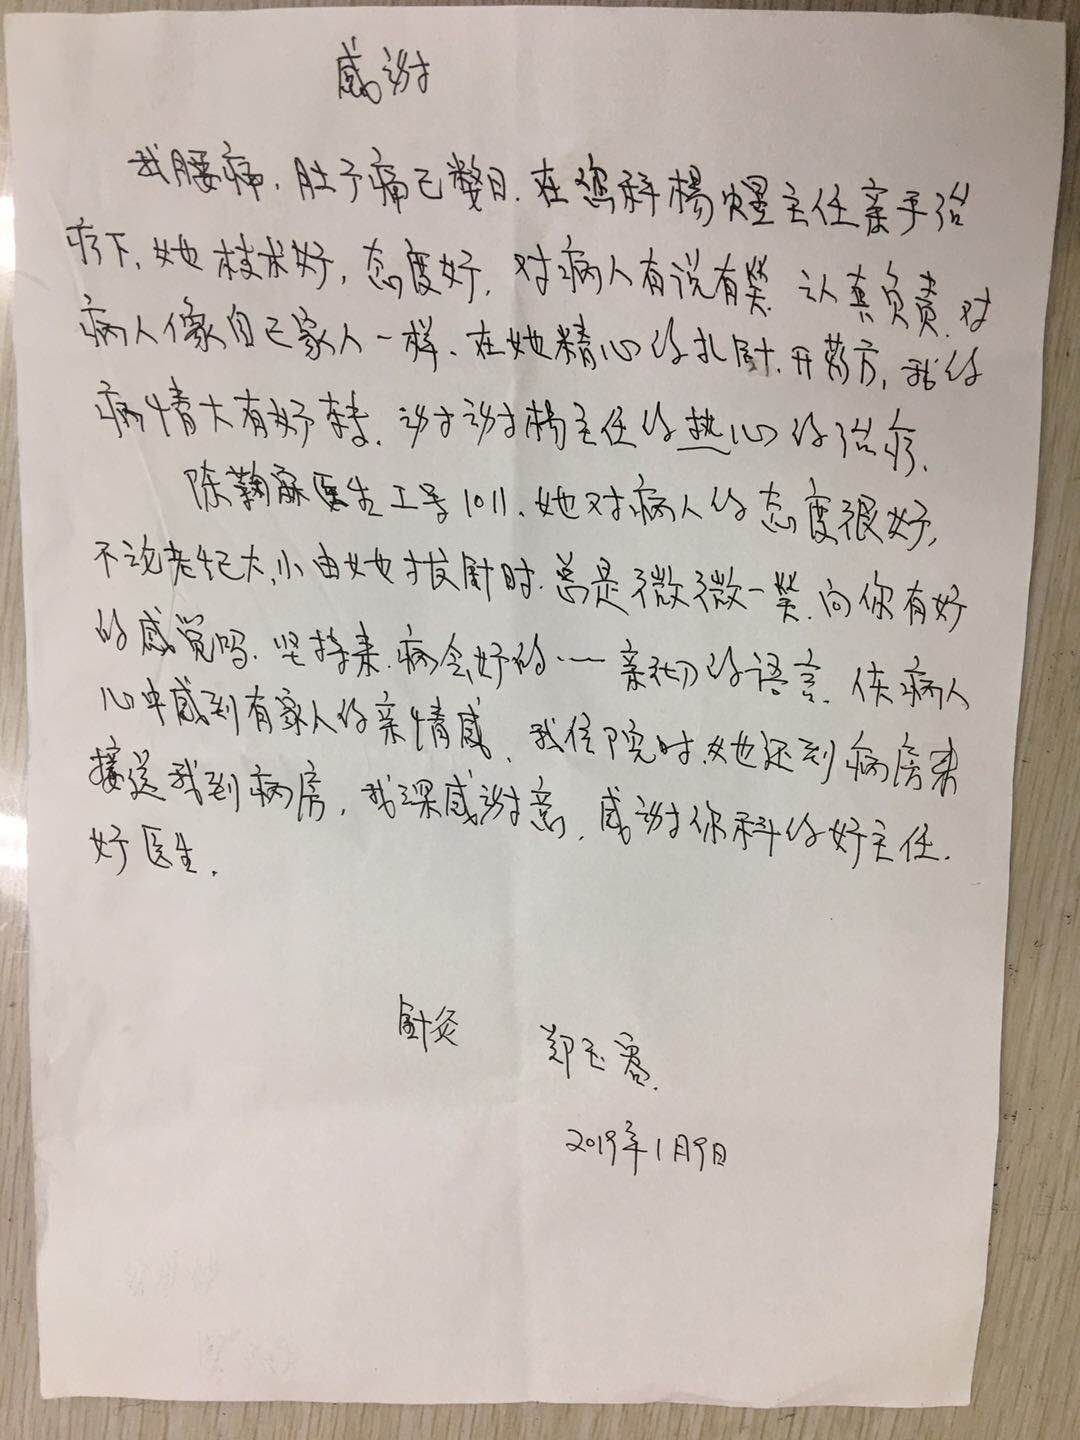 感谢
我腰痛,肚子痛已数日.在您科楊主任亲手治
疗下,她技术好,态度好,对病人有说有笑.认真负责.对
病人像自己家人一样.在她精心的扎針.开药方,我的
病情大有好转.谢谢楊主任的热心的治疗.
陈鞠医生工号1011.她对病人的态度很好,
不论老纪大,小由她拔針时.总是微微一笑.问你有好
的感觉吗.坚持来.病会好的……亲切的语言.使病人
心中感到有家人的亲情感.我住院时.她还到病房来
接送我到病房,我深感谢意,感谢你科的好主任.
好医生.
針灸
郑玉
2019年1月9日